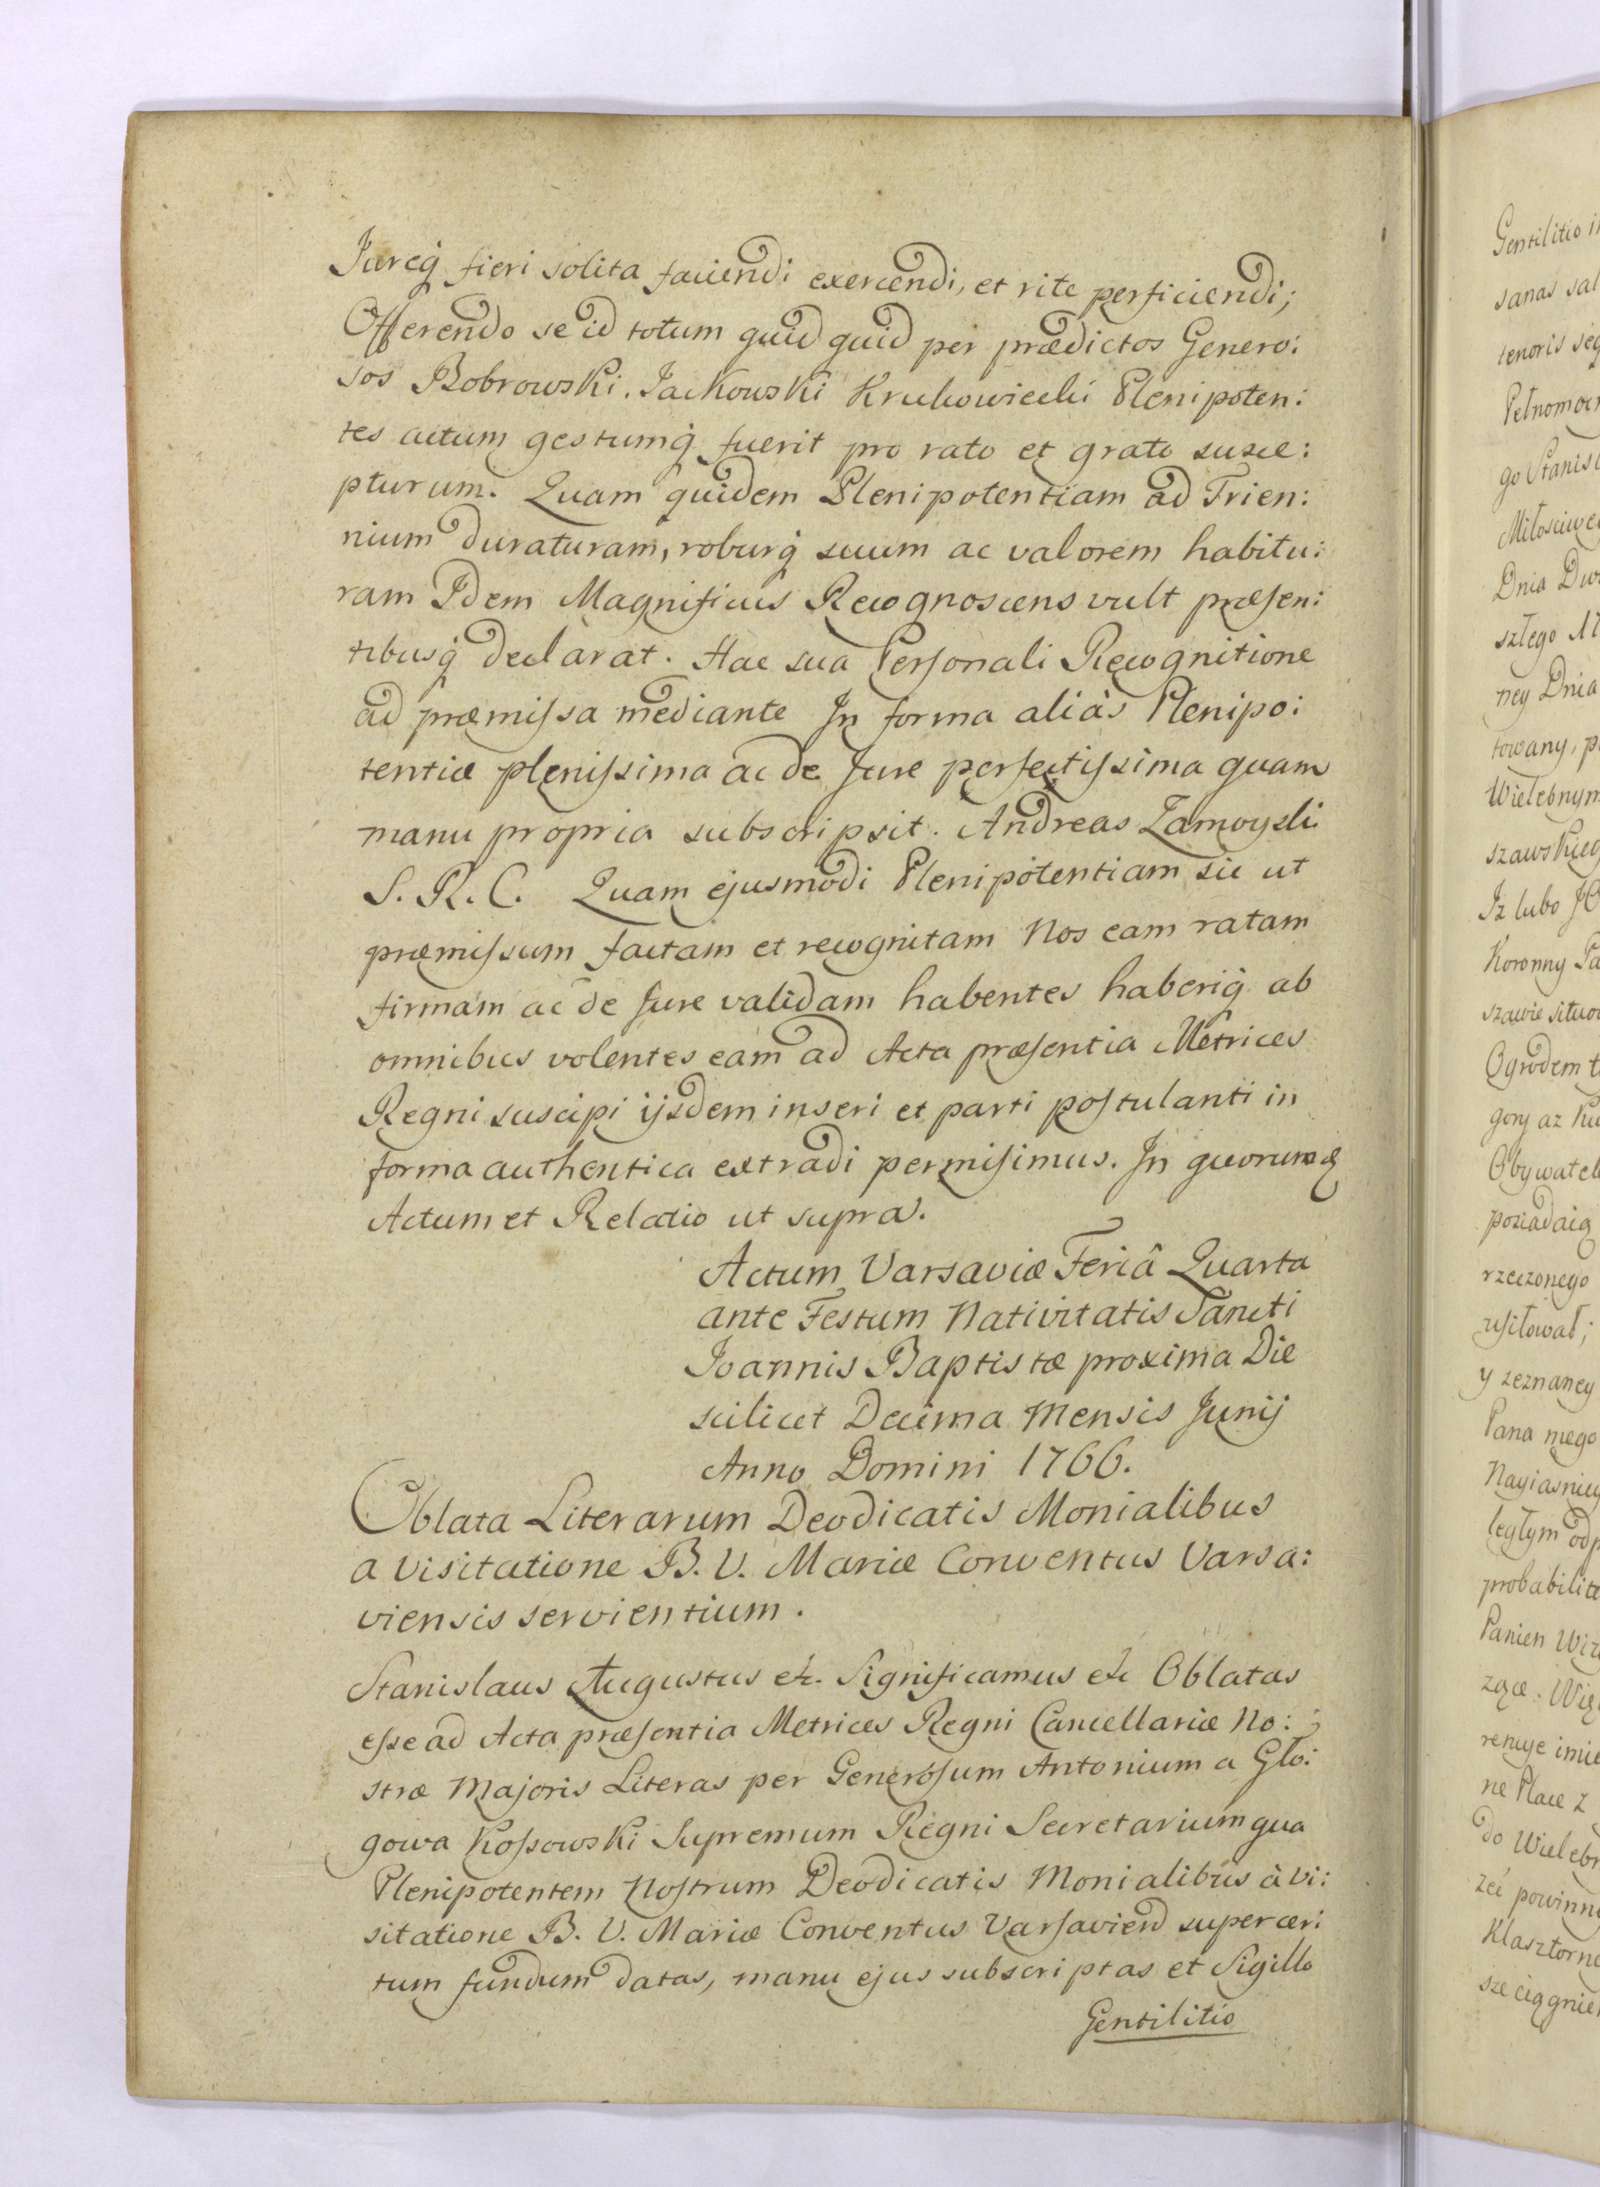 Jureq̃ fieri solita faciendi exercendi, et rite perficiendi;
Offerendo se id totum quid quid per prædictos Genero:
sos Bobrowski. Jackowski Krukowiecki Plenipoten:
tes actum gestumq̃ fuerit pro rato et grato susce:
pturum. Quam quidem Plenipotentiam ad Trien:
nium duraturam, roburq̃ suum ac valorem habitu:
ram Idem Magnificus Recognoscens vult præsen:
tibusq̃ declarat. Hac sua Personali Recognitione
ad præmissa mediante In forma aliàs Plenipo:
tentiæ plenissima ac de Jure perfectissima quam
manu propria subscripsit. Andreas Zamoyski
S. R. C. Quam ejusmodi Plenipotentiam sic ut
præmissum factam et recognitam Nos eam ratam
firmam ac de Jure validam habentes haberiq̃ ab
omnibus volentes eam ad Acta præsentia Metrices
Regni suscipi ijsdem inseri et parti postulanti in
forma authentica extradi permisimus. In quorum
Actum et Relatio ut supra.
Actum Varsaviæ Feriâ Quarta
ante Festum Nativitatis Sancti
Joannis Baptistæ proxima Die
scilicet Decima Mensis Junij
Anno Domini 1766.
Oblata Literarum Deodicatis Monialibus
a visitatione B. V. Mariæ Conventus Varsa:
viensis servientium.
Stanislaus Augustus etc. Significamus etc Oblatas
esse ad Acta præsentia Metrices Regni Cancellariæ No:
stræ Majoris Literas per Generosum Antonium a Gło:
gowa Kossowski Supremum Regni Secretarium qua
Plenipotentem Nostrum Deodicatis Monialibus à vi:
sitatione B. V. Mariæ Conventus Varsavien super cer:
tum fundum datas, manu ejus subscriptas et Sigillo
Gentilitio
Gentilitio
sanas
tenoris
go
Dnia
szłego
ney Dnia
towany,
Iz lubo
Koronny
szawie
Ogrodem
gory az
posiadaią
rzeczonego
usiłował;
y zeznaney
Pana mego
ległym
Panien
ne Place z
do
zei